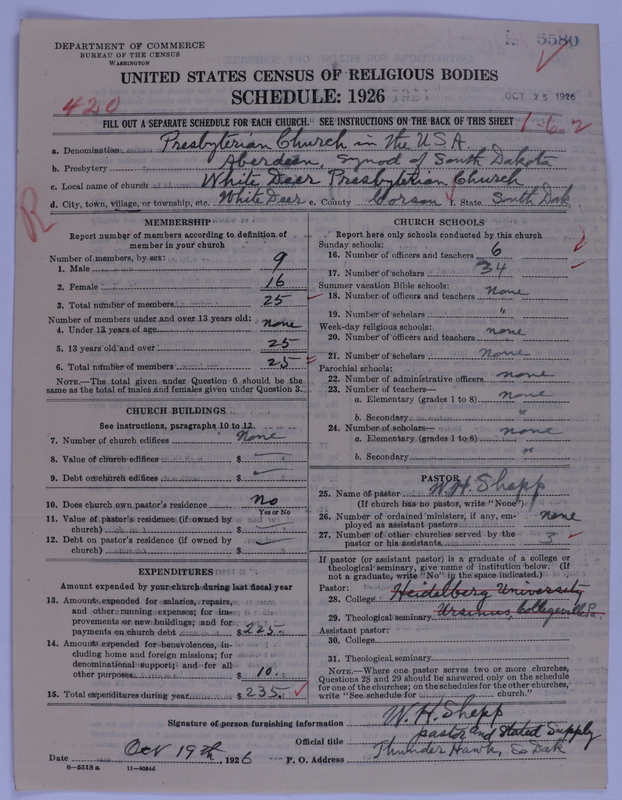 5580
DEPARTMENT OF COMMERCE
BUREAU OF THE CENSUS
WASHINGTON
UNITED STATES CENSUS OF RELIGIOUS BODIES
SCHEDULE: 1926
OCT 25 1926
420
FILL OUT A SEPARATE SCHEDULE FOR EACH CHURCH. SEE INSTRUCTIONS ON THE BACK OF THIS SHEET
1-6-2
a. Denomination Presbyterian Church in the U.S.A.
b. Presbytery Aberdeen, Synod of South Dakota
c. Local name of church White Deer Presbyterian Church
d. City, town, village, or township, etc. White Deer e. County Corson f. State South Dak
R
MEMBERSHIP
Report number of members according to definition of member in your church
Number of members, by sex:
1. Male 9
2. Female 16
3. Total number of members 25
Number of members under and over 13 years old:
4. Under 13 years of age none
5. 13 years old and over 25
6. Total number of members 25
NOTE.—The total given under Question 6 should be the same as the total of males and females given under Question 3.
CHURCH BUILDINGS
See instructions, paragraphs 10 to 12
7. Number of church edifices None
8. Value of church edifices $
9. Debt on church edifices $
10. Does church own pastor's residence No
Yes or No
11. Value of pastor's residence (if owned by church) $
12. Debt on pastor's residence (if owned by church) $
EXPENDITURES
Amount expended by your church during last fiscal year
13. Amount expended for salaries, repairs, and other running expenses; for improvements or new buildings; and for payments on church debt $225.
14. Amounts expended for benevolences, including home and foreign missions; for denominational support; and for all other purposes $10.
15. Total expenditures during year $235.
CHURCH SCHOOLS
Report here only schools conducted by this church
Sunday schools:
16. Number of officers and teachers 6
17. Number of scholars 34
Summer vacation Bible schools:
18. Number of officers and teachers None
19. Number of scholars "
Week-day religious schools:
20. Number of officers and teachers none
21. Number of scholars none
Parochial schools:
22. Number of administrative officers none
23. Number of teachers—
a. Elementary (grades 1 to 8) none
b. Secondary "
24. Number of scholars—
a. Elementary (grades 1 to 8) none
b. Secondary "
PASTOR
25. Name of pastor W. H. Shepp
(If church has no pastor, write "None")
26. Number of ordained ministers, if any, employed as assistant pastors none
27. Number of other churches served by the pastor or his assistants 3
If pastor (or assistant pastor) is a graduate of a college or theological seminary, give name of institution below. (If not a graduate, write "No" in the space indicated.)
Pastor:
28. College Heidelberg University
29. Theological seminary Ursinus, Collegeville Pa.
Assistant pastor:
30. College
31. Theological seminary
NOTE.—Where one pastor serves two or more churches, Questions 28 and 29 should be answered only on the schedule for one of the churches; on the schedules for the other churches, write "See schedule for church."
Signature of person furnishing information W. H. Shepp
Official title pastor and Stated Supply
Date Oct 19th, 1926 P. O. Address Thunder Hawk, So Dak
8-5518a